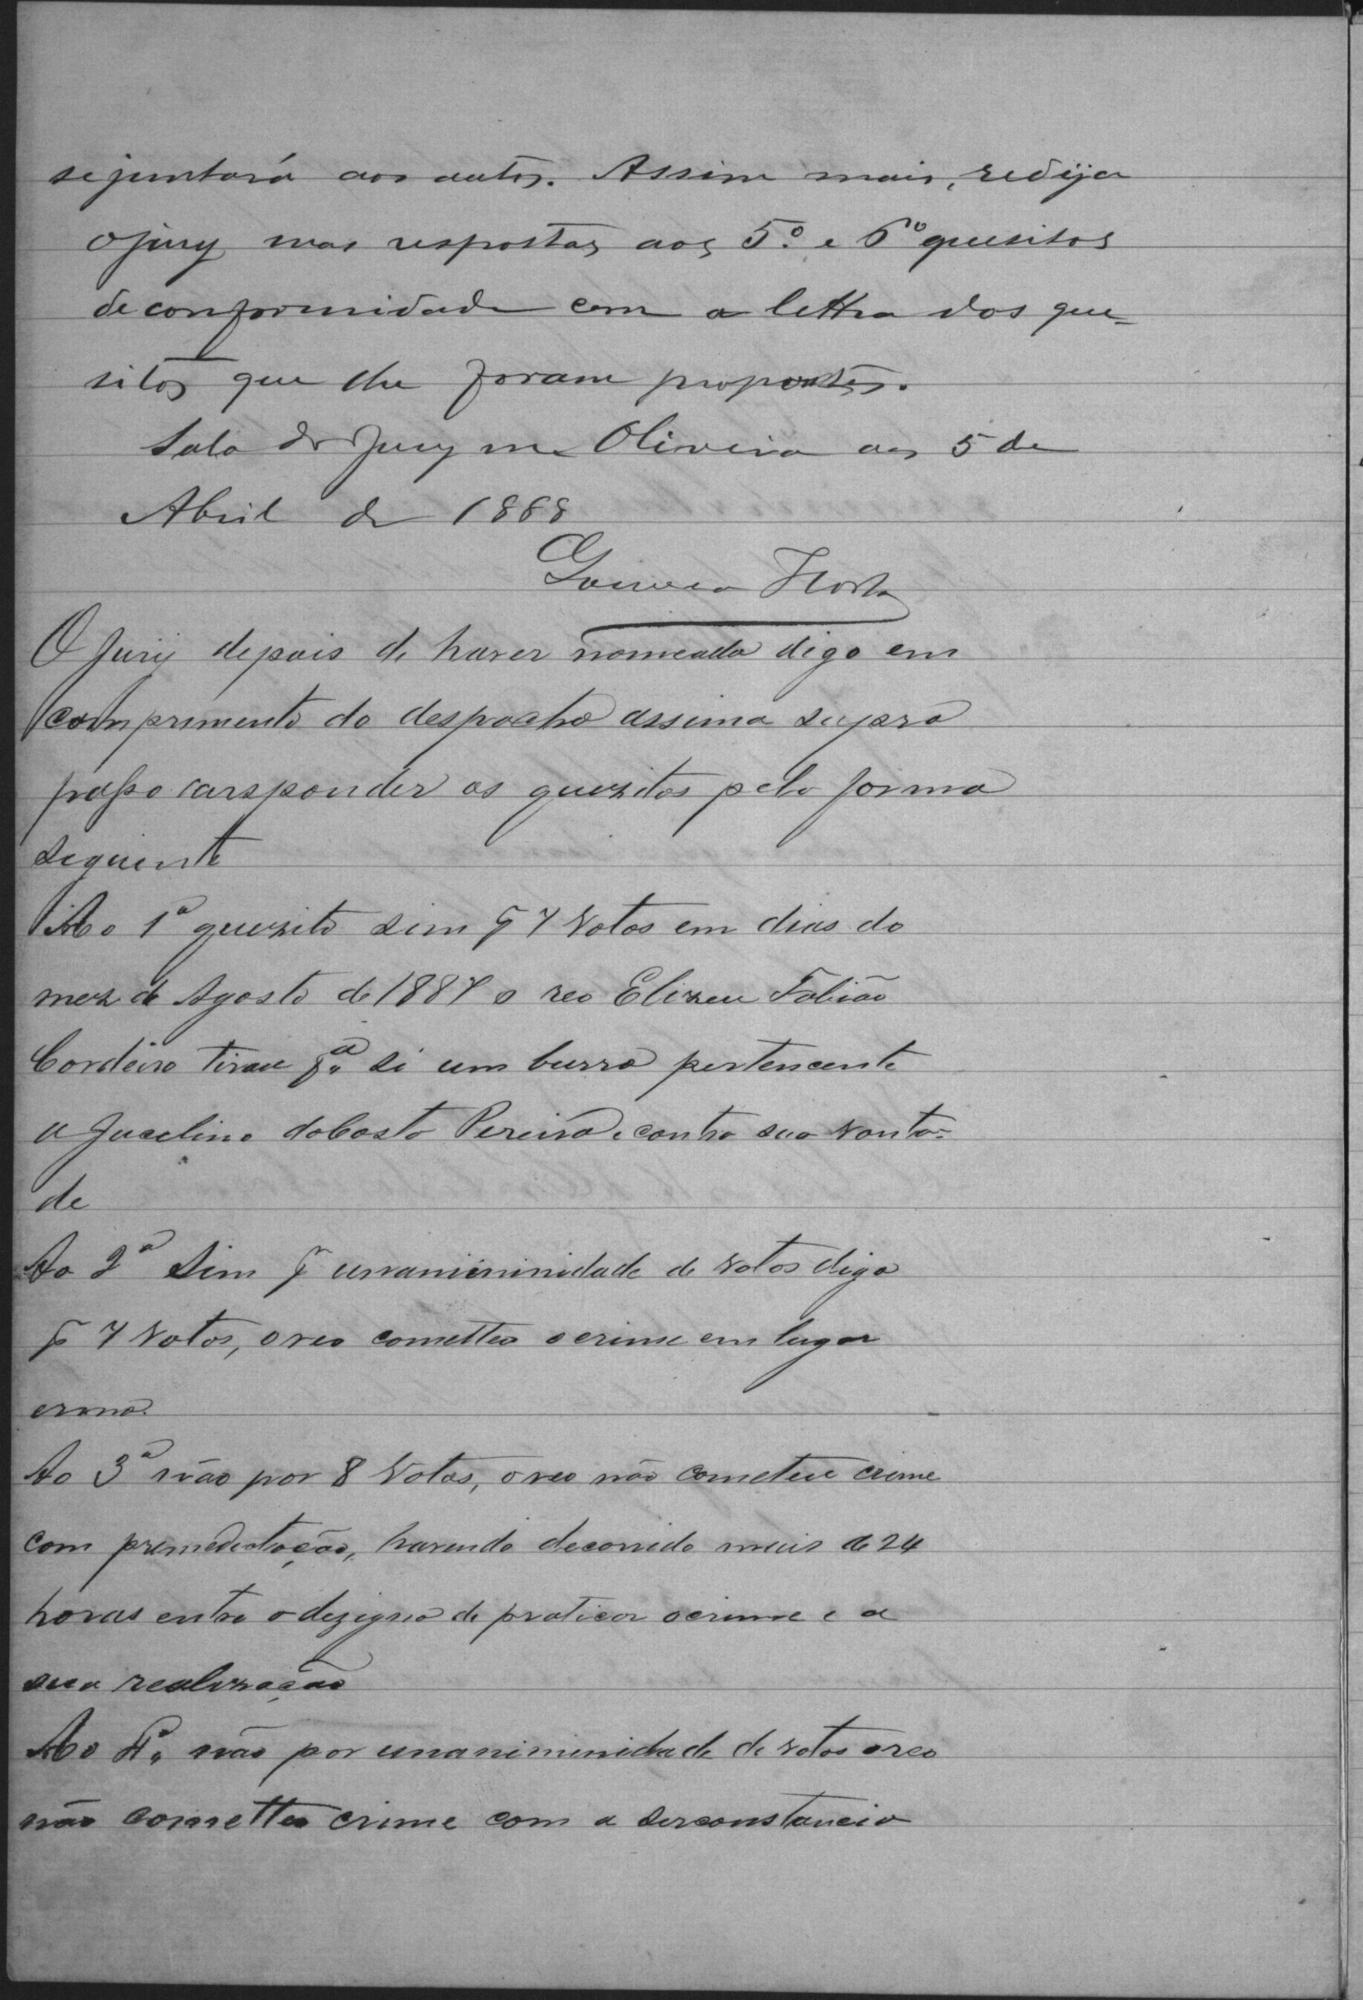 se juntará aos autos. Assim mais, redija
o jury suas respostas aos 5º e 6º quesitos
de conformidade com a lettra dos que-
sitos que lhe foram propostos.
Sala do Jury na Oliveira aos 5 de
Abril de 1888
Horta
O Jury depois de haver nomeado digo em
comprimento do despacho assima supra
passo a responder os quezitos pela forma
seguinte
Ao 1º quezito sim p 7 Votos em dias do
mez de Agosto de 1887 o reo Elizeu Fabião
Cordeiro tirou p.ª si um burro pertencente
a Jucelino da Costa Pereira, contra sua vonta-
de
Ao 2º Sim p unaniminidade de votos digo
p 7 Votos, o reo cometteo o crime em lugar
ermo.
Ao 3º não por 8 Votos, o reo não cometeu crime
com premeditação, havendo decorrido mais de 24
horas entre o dezignio de praticar o crime e a
sua realização
Ao 4º não por unanimenidade de votos o reo
não cometteo crime com a serconstancia